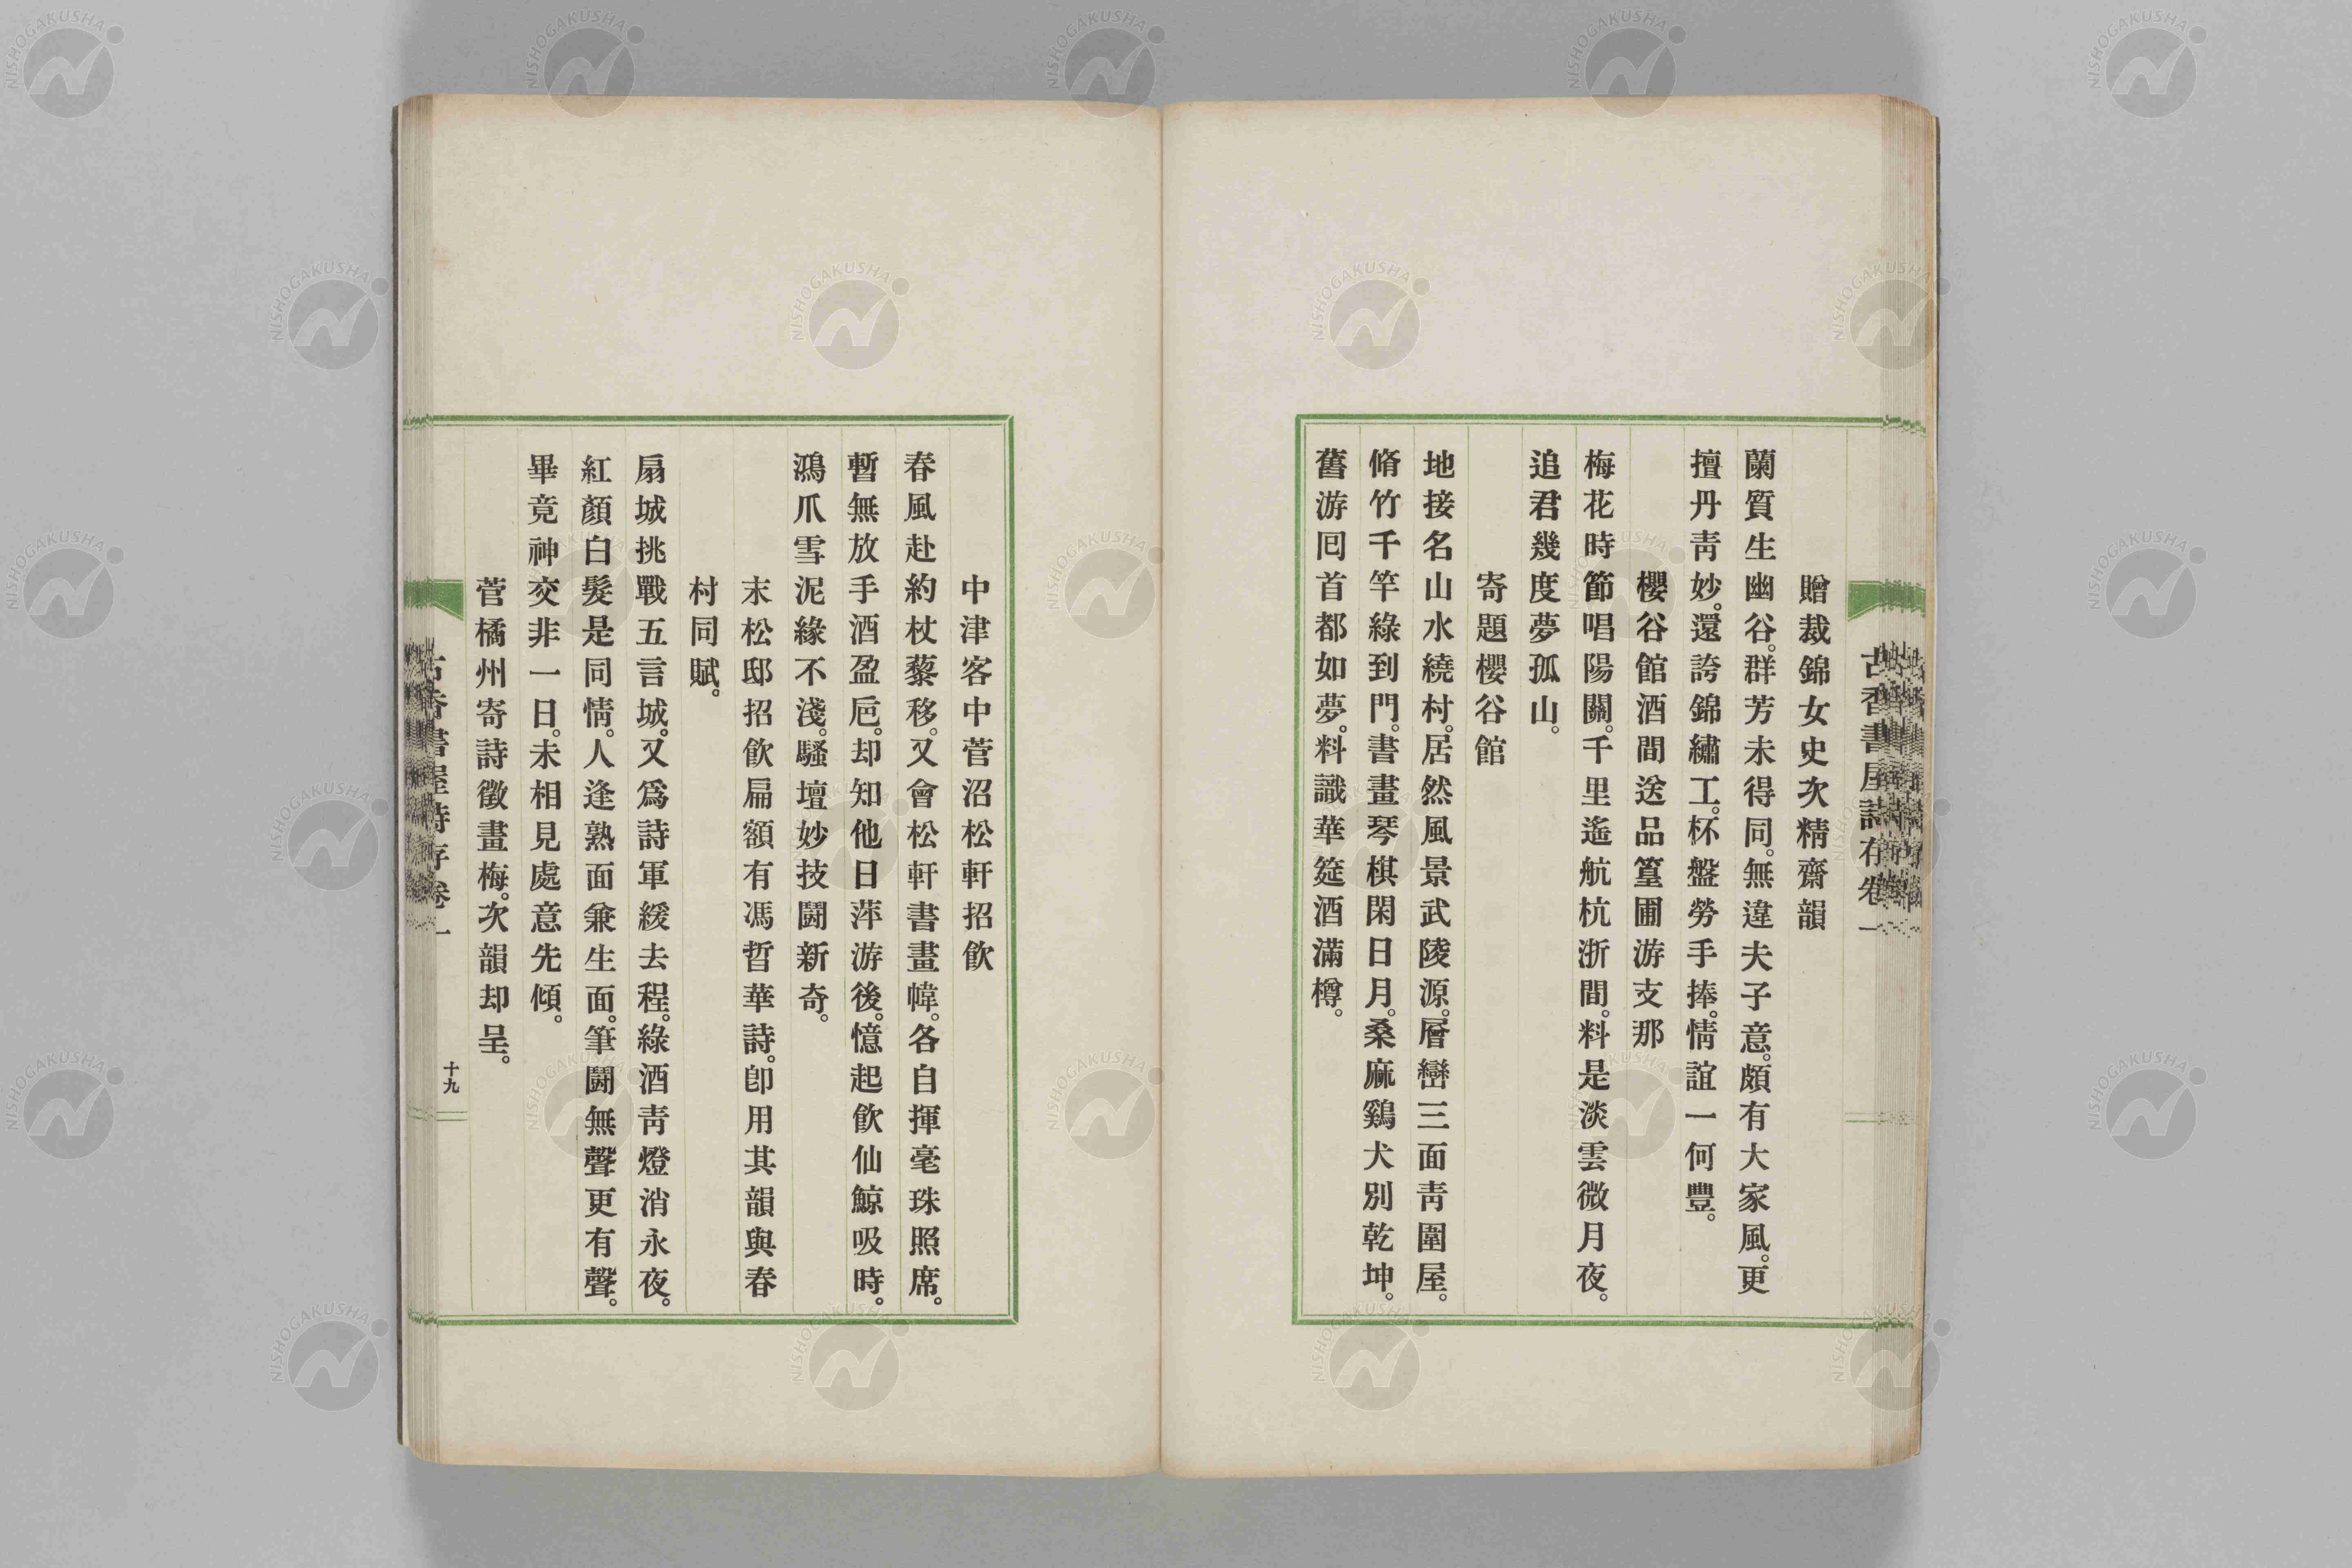 贈裁錦女史次精齋韻
蘭質生幽谷。群芳未得同。無違夫子意。頗有大家風。更
擅丹靑妙。還誇錦繡工。杯盤勞手捧。情誼一何豐。
櫻谷館酒間送品篁圃游支那
梅花時節唱陽關。千里遙航杭浙間。料是淡雲微月夜。
追君幾度夢孤山。
寄題櫻谷館
地接名山水繞村。居然風景武陵源。層巒三面靑圍屋。
脩竹千竿綠到門。書畫琴棋閑日月。桑麻鷄犬別乾坤。
舊游囘首都如夢。料識華筵酒滿樽。
古香書屋詩存卷一
中津客中菅沼松軒招飮
春風赴約杖藜移。又會松軒書畫幃。各自揮毫珠照席。
暫無放手酒盈巵。却知他日萍游後。憶起飮仙鯨吸時。
鴻爪雪泥緣不淺。騷壇妙技鬪新奇。
末松邸招飮扁額有馮哲華詩。卽用其韻與春
村同賦。
扇城挑戰五言城。又爲詩軍緩去程。綠酒靑燈消永夜。
紅顏白髮是同情。人逢熟面兼生面。筆鬪無聲更有聲。
畢竟神交非一日。未相見處意先傾。
菅橘州寄詩徵畫梅。次韻却呈。
古香書屋詩存卷一
十九
NISHOGAKUSHA